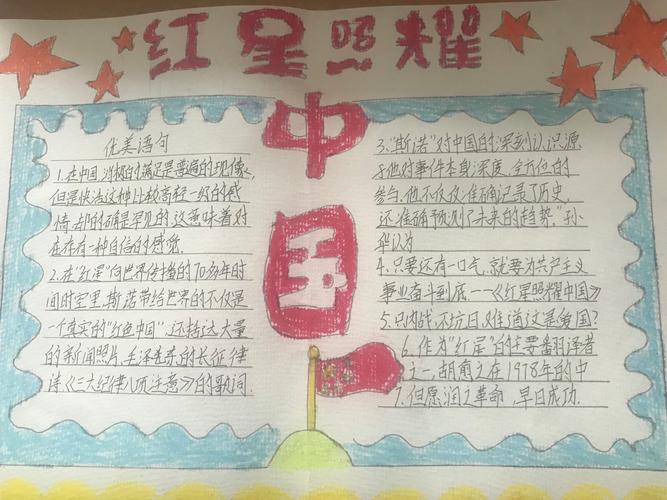 红星照耀
中
国
优美语句
1.在中国,消极的满足是普遍的现像,
但是快活这种比较高轻一级的感
情,却的确是罕见的,这意味着对
在存有一种自信的感觉.
2.在"红星"向世界传播的70多年时
间时室里,斯诺带给世界的不仅是
一个真实的"红色中国",还括达大量
的新闻照片,毛泽东的长征律
诗《三大纪律八项注意》的歌词.
3."斯诺"对中国的深刻认识源
于他对事件本身深度、全方位的
参与.他不仅仅准确记录了历史,
还准确预测了未来的趋势."孙
华认为
4.只要还有一口气,就要为共产主义
事业奋斗到底.——《红星照耀中国》
5.只内战,不抗日,难道这是爱国?
6.作为"红星"的主要翻译者
之一,胡俞之在1978年的中
7.但愿润之革命,早日成功.